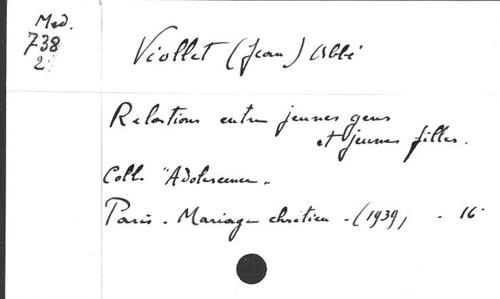 Med.
738
2
Viollet (Jean) Abbé
Relations entre jeunes gens
et jeunes filles.
Coll. "Adolescence"
Paris - Mariage chrétien - (1939) - 16